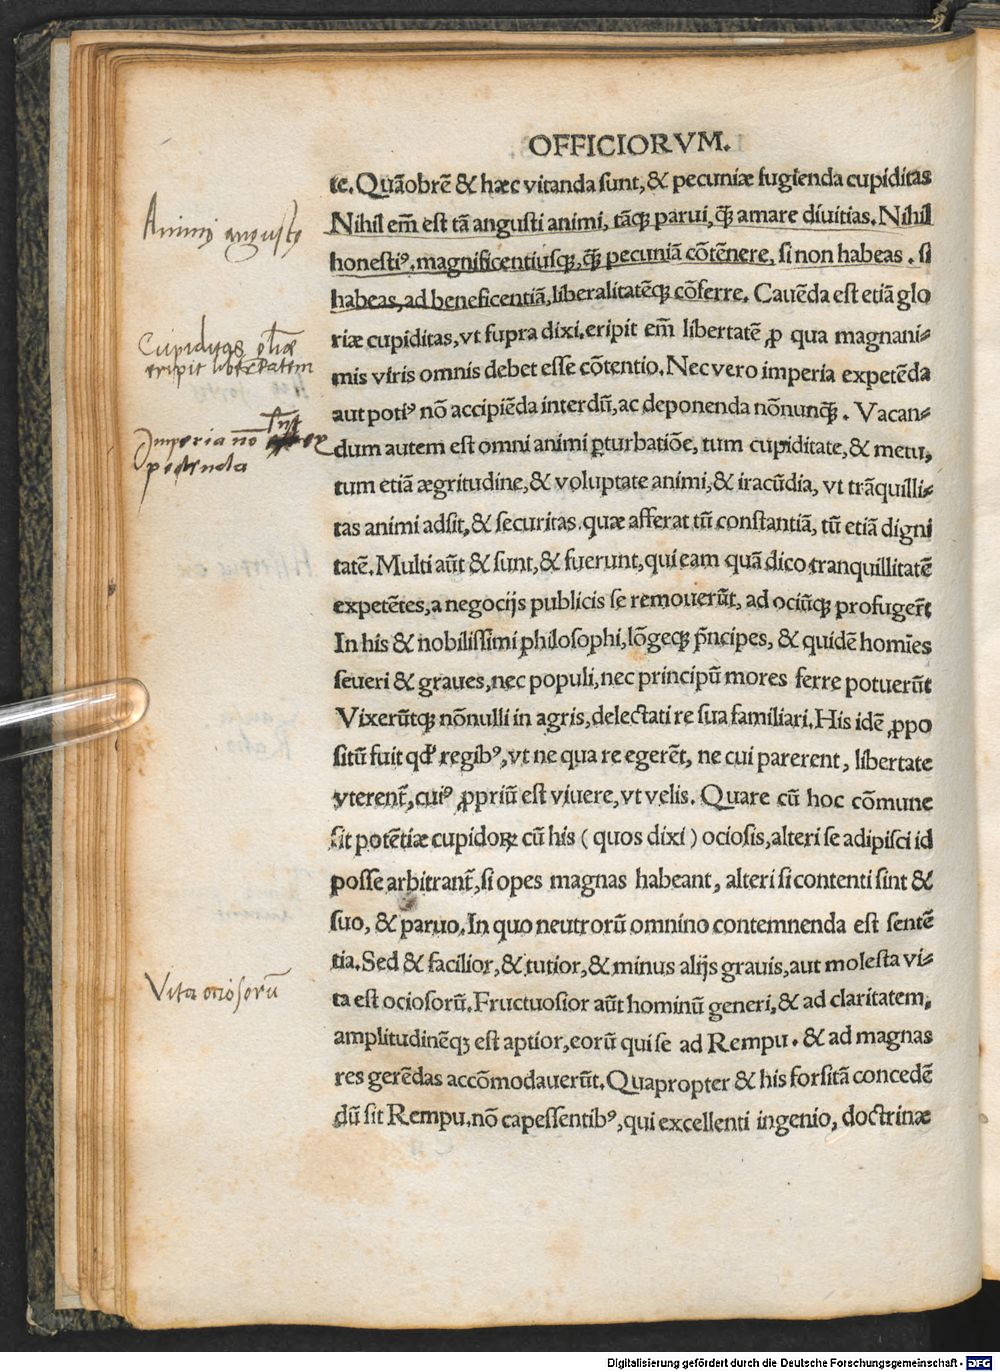 OFFICIORVM.
te. Quãobrẽ & hæc vitanda sunt, & pecuniæ fugienda cupiditas
Nihil em̃ est tã angusti animi, tãqꝫ parui, q̃ꝫ amare diuitias. Nihil
honestiꝰ, magnificentiusqꝫ, q̃ꝫ pecuniã cõtẽnere, si non habeas. si
habeas, ad beneficentiã, liberalitatẽqꝫ cõferre. Cauẽda est etiã glo
riæ cupiditas, vt supra dixi. eripit em̃ libertatẽ, ꝓ qua magnani-
mis viris omnis debet esse cõtentio. Nec vero imperia expetẽda
aut potiꝰ nõ accipiẽda interdũ, ac deponenda nõnunq̃ꝫ. Vacan-
dum autem est omni animi ꝑturbatiõe, tum cupiditate, & metu,
tum etiã ægritudine, & voluptate animi, & iracũdia, vt trãquilli-
tas animi adsit, & securitas. quæ afferat tũ constantiã, tũ etiã digni
tatẽ. Multi aũt & sunt, & fuerunt, qui eam quã dico tranquillitatẽ
expetẽtes, a negocijs publicis se remouerũt, ad ociũqꝫ profugerũt
In his & nobilissimi philosophi, lõgeqꝫ p̃ncipes, & quidẽ homĩes
seueri & graues, nec populi, nec principũ mores ferre potuerũt
Vixerũtqꝫ nõnulli in agris, delectati re sua familiari. His idẽ ꝓpo
sitũ fuit qđ regibꝰ, vt ne qua re egerẽt, ne cui parerent, libertate
vterent̃, cuiꝰ ꝓpriũ est viuere, vt velis. Quare cũ hoc cõmune
sit potẽtiæ cupidoꝝ cũ his ( quos dixi ) ociosis, alteri se adipisci id
posse arbitrant̃, si opes magnas habeant, alteri si contenti sint &
suo, & paruo. In quo neutrorũ omnino contemnenda est sentẽ
tia. Sed & facilior, & tutior, & minus alijs grauis, aut molesta vi-
ta est ociosorũ. Fructuosior aũt hominũ generi, & ad claritatem,
amplitudinẽqꝫ est aptior, eorũ qui se ad Rempu. & ad magnas
res gerẽdas accõmodauerũt. Quapropter & his forsitã concedẽ
dũ sit Rempu. nõ capessentibꝰ, qui excellenti ingenio, doctrinæ
Animi angusti
Cupiditas gl̃iæ
eripit libertatem
Imperia nõ sũt ex
petenda
Vita ociosorũ
Digitalisierung gefördert durch die Deutsche Forschungsgemeinschaft - DFG